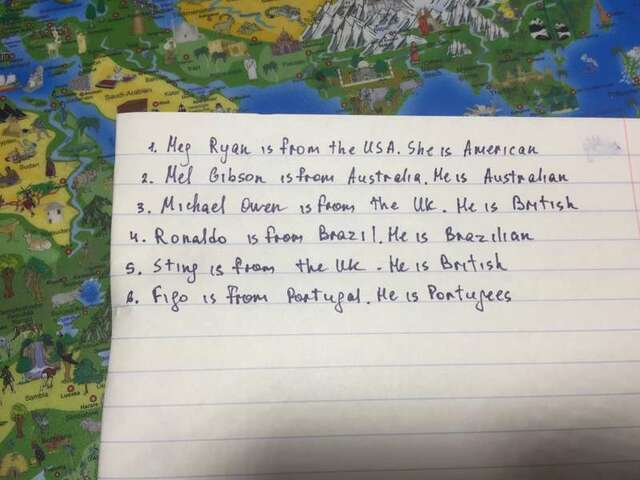 1. Meg Ryan is from the USA. She is American
2. Mel Gibson is from Australia. He is Australian
3. Michael Owen is from the UK. He is British
4. Ronaldo is from Brazil. He is Brazilian
5. Sting is from the UK. He is British
6. Figo is from Portugal. He is Portugees